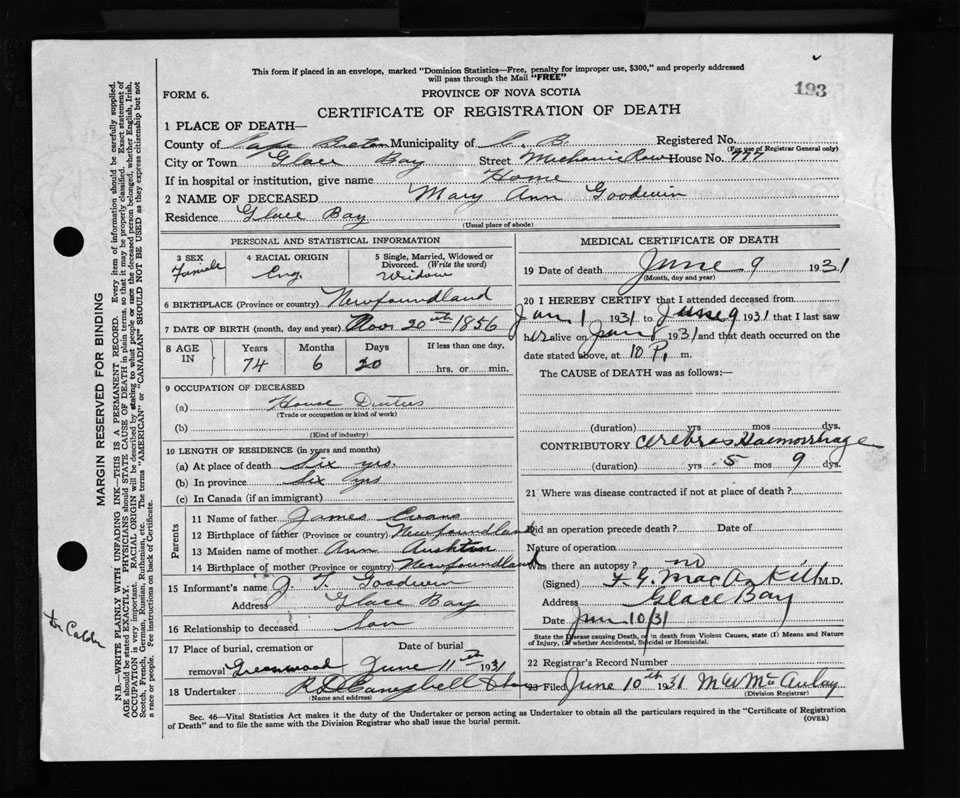 This form if placed in an envelope, marked "Dominion Statistics—Free, penalty for improper use, $300," and properly addressed
will pass through the Mail "FREE"
193
FORM 6.
PROVINCE OF NOVA SCOTIA
CERTIFICATE OF REGISTRATION OF DEATH
1 PLACE OF DEATH—
County of Cape Breton Municipality of C. B. Registered No.
(For use of Registrar General only)
City or Town Glace Bay Street Mechanic Row House No. 777
If in hospital or institution, give name Home
2 NAME OF DECEASED Mary Ann Goodwin
Residence Glace Bay
(Usual place of abode)
PERSONAL AND STATISTICAL INFORMATION
3 SEX 4 RACIAL ORIGIN 5 Single, Married, Widowed or
Divorced. (Write the word)
Female Eng. Widow
6 BIRTHPLACE (Province or country) Newfoundland
7 DATE OF BIRTH (month, day and year) Nov 20th 1856
8 AGE IN Years Months Days If less than one day,
74 6 20 hrs. or min.
9 OCCUPATION OF DECEASED
(a) House Duties
(Trade or occupation or kind of work)
(b)
(Kind of industry)
10 LENGTH OF RESIDENCE (in years and months)
(a) At place of death Six yrs.
(b) In province Six yrs
(c) In Canada (if an immigrant)
Parents
11 Name of father James Evans
12 Birthplace of father (Province or country) Newfoundland
13 Maiden name of mother Ann
14 Birthplace of mother (Province or country) Newfoundland
15 Informant's name J. T. Goodwin
Address Glace Bay
16 Relationship to deceased Son
17 Place of burial, cremation or Date of burial
removal Greenwood June 11th 1931
18 Undertaker R D Campbell
(Name and address)
MEDICAL CERTIFICATE OF DEATH
19 Date of death June 9 1931
(Month, day and year)
20 I HEREBY CERTIFY that I attended deceased from
Jan 1 1931 to June 9 1931 that I last saw
her alive on June 8 1931 and that death occurred on the
date stated above, at 10 P. m.
The CAUSE of DEATH was as follows:—
(duration) yrs mos dys.
CONTRIBUTORY Cerebral Haemorrhage
(duration) yrs 5 mos 9 dys.
21 Where was disease contracted if not at place of death?
Did an operation precede death? Date of
Nature of operation
Was there an autopsy? no
(Signed) MacAskill M.D.
Address Glace Bay
Date Jun 10/31
State the Disease causing Death, or in death from Violent Causes, state (1) Means and Nature
of Injury, (2) whether Accidental, Suicidal or Homicidal.
22 Registrar's Record Number
23 Filed June 10th 1931 M W McAulay
(Division Registrar)
Sec. 46—Vital Statistics Act makes it the duty of the Undertaker or person acting as Undertaker to obtain all the particulars required in the "Certificate of Registration
of Death" and to file the same with the Division Registrar who shall issue the burial permit.
(OVER)
MARGIN RESERVED FOR BINDING
N.B.—WRITE PLAINLY WITH UNFADING INK—THIS IS A PERMANENT RECORD. Every item of information should be carefully supplied.
AGE should be stated EXACTLY. PHYSICIANS should STATE CAUSE OF DEATH in plain terms, so that it may be properly classified. Exact statement of
OCCUPATION is very important. RACIAL ORIGIN will be described by stating to what people or race the deceased person belonged, whether English, Irish,
Scotch, French, German, Russian, Ruthenian, etc. The terms "AMERICAN" or "CANADIAN" SHOULD NOT BE USED as they express citizenship but not
a race or people. Fee instructions on back of Certificate.